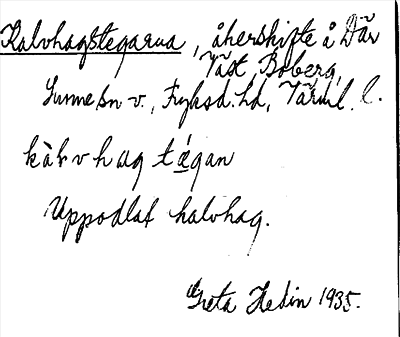 Kalvhagstegarna, åkerskifte å Där
Väst Boberg,
Sunne sn v., Fryksd. hd, Värml. l.
kàrvhag tægan
Uppodlat kalvhag.
Greta Hedin 1935.